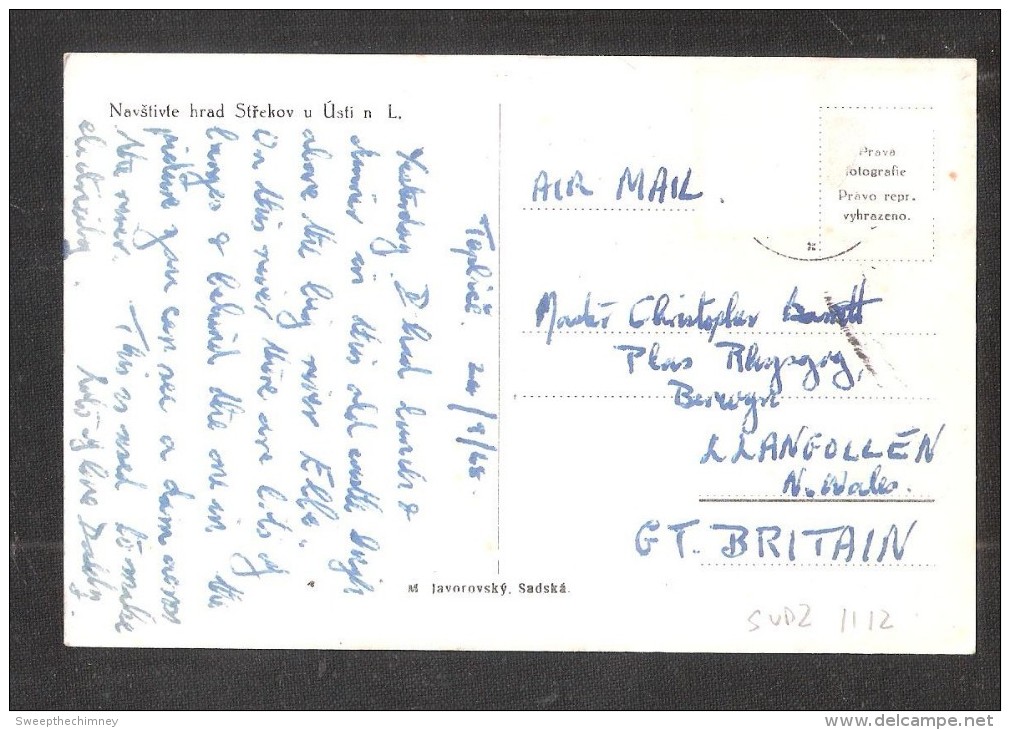 Navštivte hrad Střekov u Ústi n L.
Teplice. 20/9/65
Yesterday I had lunch &
dinner in this old castle high
above the big river Elbe.
On this river there are lots of
barges & behind the one in the
picture you can see a dam across
the river. This is used to make
electricity lots of love Daddy.
Prava
fotografie
Právo repr.
vyhrazeno.
AIR MAIL.
Master Christopher Barnett
Plas Rhysgog,
Berwyn
LLANGOLLEN
N. Wales.
GT. BRITAIN
M Javorovský, Sadská.
SVDZ 1112
Sweepthechimney
www.delcampe.net